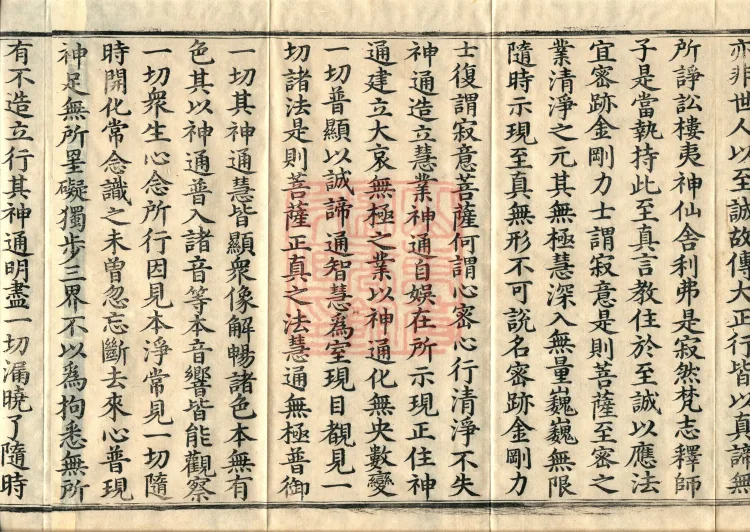 亦非世人以至誠故傳大正行皆以真諦無
所諍訟樓夷神仙舍利弗是寂然梵志釋師
子是當執持此至真言教住於至誠以應法
宜密跡金剛力士謂寂意是則菩薩至密之
業清淨之元其無極慧深入無量巍巍無限
隨時示現至真無形不可說名密跡金剛力
士復謂寂意菩薩何謂心密心行清淨不失
神通造立慧業神通自娛在所示現正住神
通建立大哀無極之業以神通化無央數變
一切普顯以誠諦通智慧爲室現目覩見一
切諸法是則菩薩正真之法慧通無極普御
一切其神通慧皆顯衆像解暢諸色本無有
色其以神通普入諸音等本音響皆能觀察
一切衆生心念所行因見本淨常見一切隨
時開化常念識之未曾忽忘斷去來心普現
神足無所罣礙獨步三界不以爲拘悉無所
有不造立行其神通明盡一切漏曉了隨時